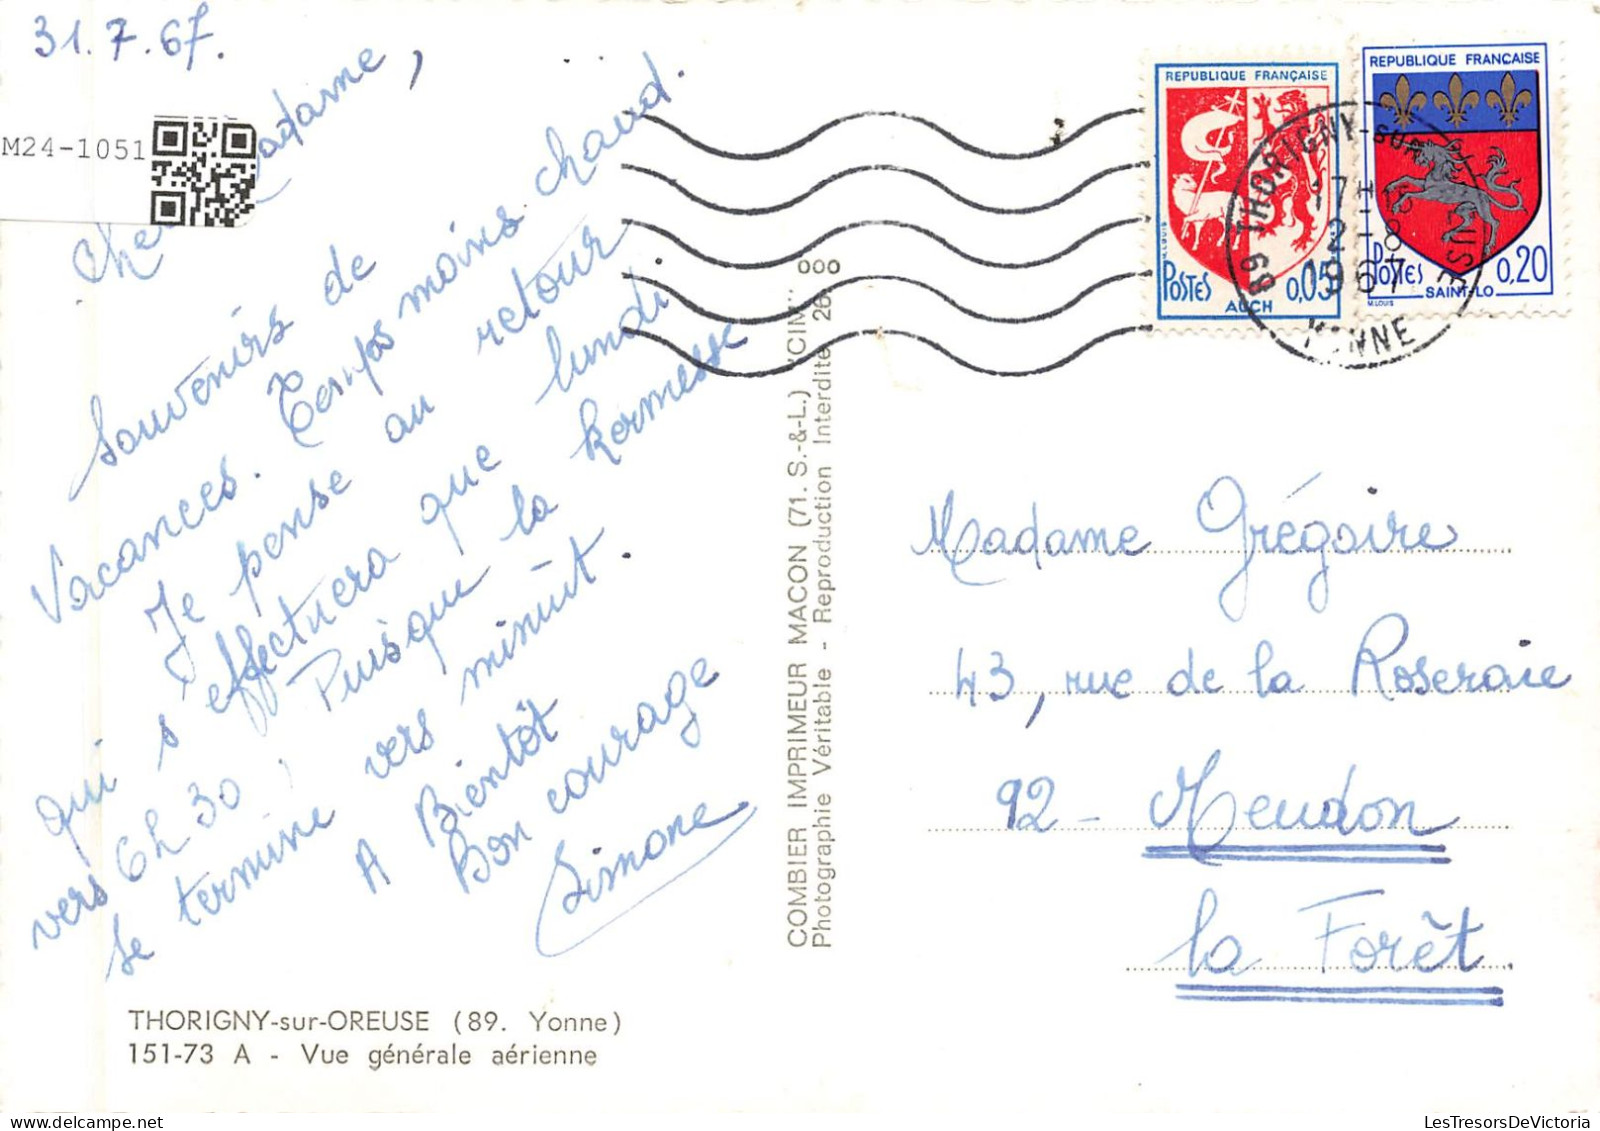 31.7.67.
M24-1051
Che adame,
Souvenirs de
Vacances. Temps moins chaud.
Je pense au retour
qui s'effectuera que lundi
vers 6h30, Puisque la kermesse
se termine vers minuit.
A Bientôt
Bon courage
Simone
THORIGNY-sur-OREUSE (89. Yonne)
151-73 A - Vue générale aérienne
COMBIER IMPRIMEUR MACON (71. S.-&-L.) "CIM"
Photographie Véritable - Reproduction Interdite 26
000
REPUBLIQUE FRANÇAISE
POSTES 0,05
AUCH
REPUBLIQUE FRANÇAISE
POSTES 0,20
SAINT-LO
M.LOUIS
89 THORIGNY-SUR-OREUSE
17H
2-8
1967
YONNE
Madame Grégoire
43, rue de la Roseraie
92 - Meudon
la Forêt
LesTresorsDeVictoria